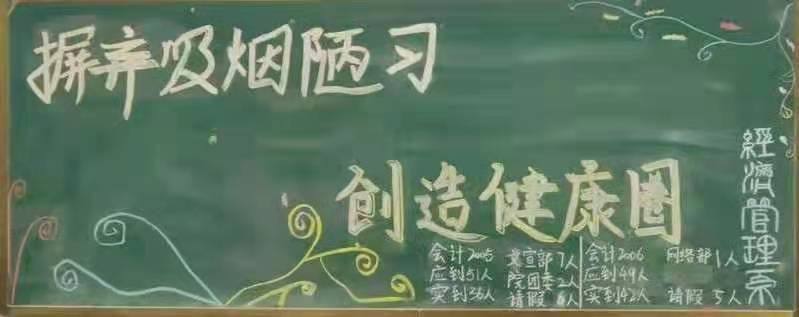 摒弃吸烟陋习
创造健康圈
經濟管理系
会计2005
应到51人
实到36人
宣部7人
院团委2人
请假6人
会计2006
应到49人
实到42人
网络部1人
请假5人